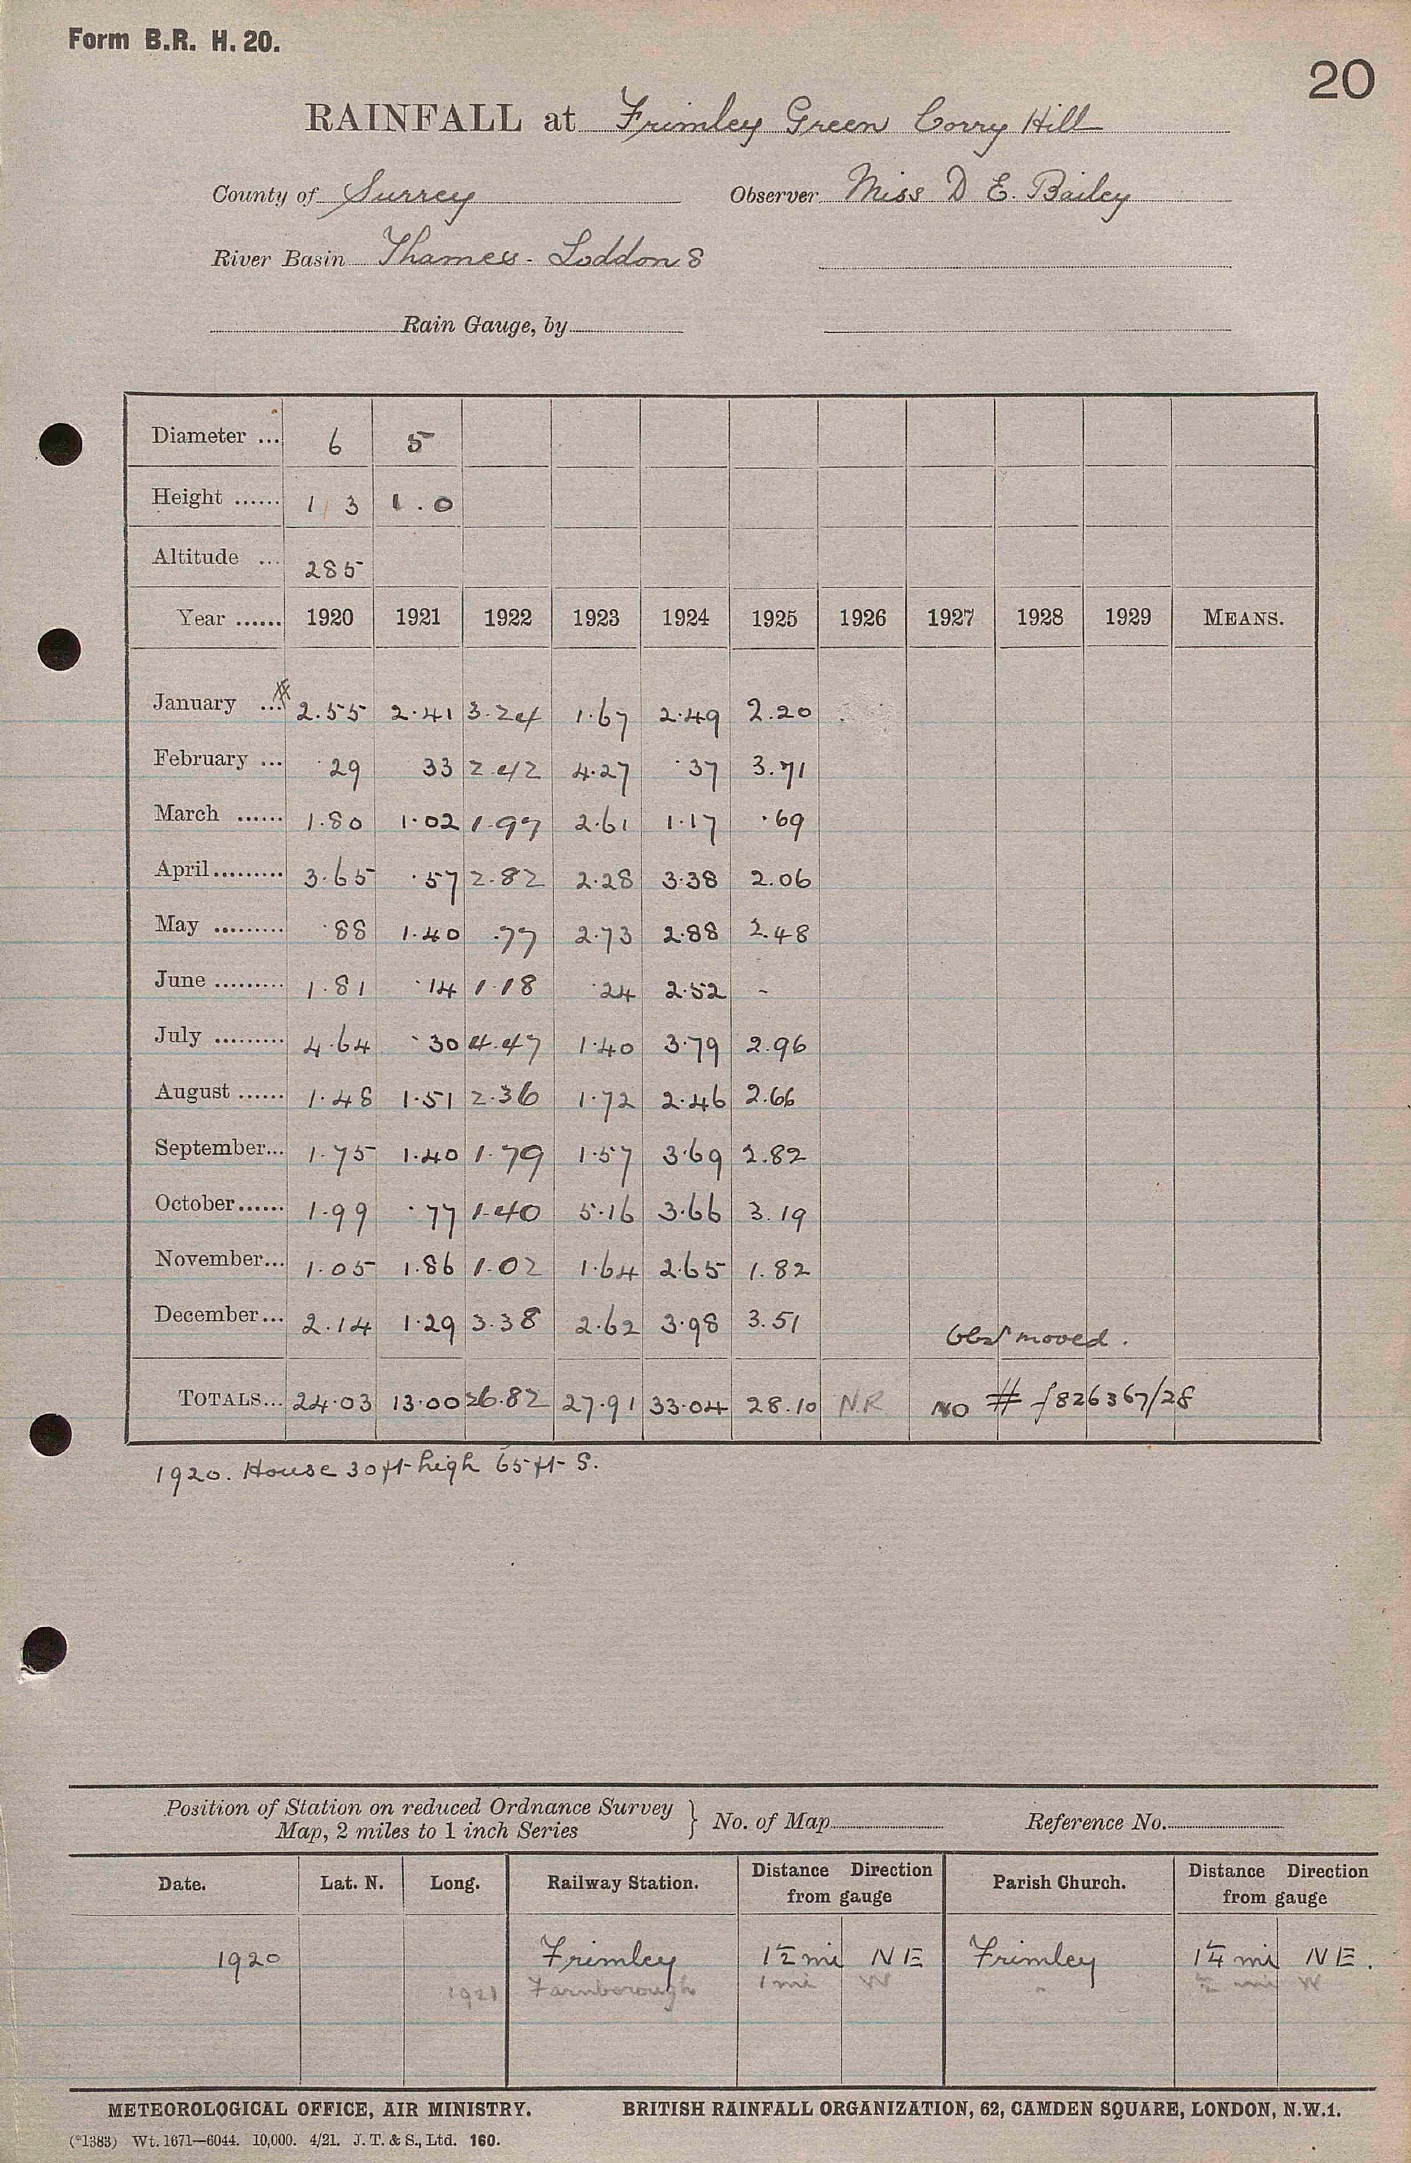 Form B.R. H. 20.
20
RAINFALL at Frimley Green Corry Hill
County of Surrey Observer Miss D E. Bailey
River Basin Thames - Loddon 8
Rain Gauge, by
Diameter ... 6 5
Height ...... 1 3 1.0
Altitude ... 285
Year ...... 1920 1921 1922 1923 1924 1925 1926 1927 1928 1929 MEANS.
January ... # 2.55 2.41 3.24 1.67 2.49 2.20
February ... .29 33 2.42 4.27 .37 3.71
March ...... 1.80 1.02 1.97 2.61 1.17 .69
April......... 3.65 .57 2.82 2.28 3.38 2.06
May ......... .88 1.40 .77 2.73 2.88 2.48
June ......... 1.81 .14 1.18 .24 2.52 -
July ......... 4.64 .30 4.47 1.40 3.79 2.96
August ...... 1.48 1.51 2.36 1.72 2.46 2.66
September... 1.75 1.40 1.79 1.57 3.69 2.82
October...... 1.99 .77 1.40 5.16 3.66 3.19
November... 1.05 1.86 1.02 1.64 2.65 1.82
December... 2.14 1.29 3.38 2.62 3.98 3.51
Obsr moved.
TOTALS... 24.03 13.00 26.82 27.91 33.04 28.10 N.R NO # f826367/28
1920. House 30ft high 65ft S.
Position of Station on reduced Ordnance Survey
Map, 2 miles to 1 inch Series } No. of Map Reference No.
Date. Lat. N. Long. Railway Station. Distance Direction from gauge Parish Church. Distance Direction from gauge
1920 Frimley 1½ mi NE Frimley 1¼ mi NE.
1921 Farnborough 1 mi W " ½ mi W
METEOROLOGICAL OFFICE, AIR MINISTRY. BRITISH RAINFALL ORGANIZATION, 62, CAMDEN SQUARE, LONDON, N.W.1.
(*1383) Wt. 1671—6044. 10,000. 4/21. J. T. & S., Ltd. 160.